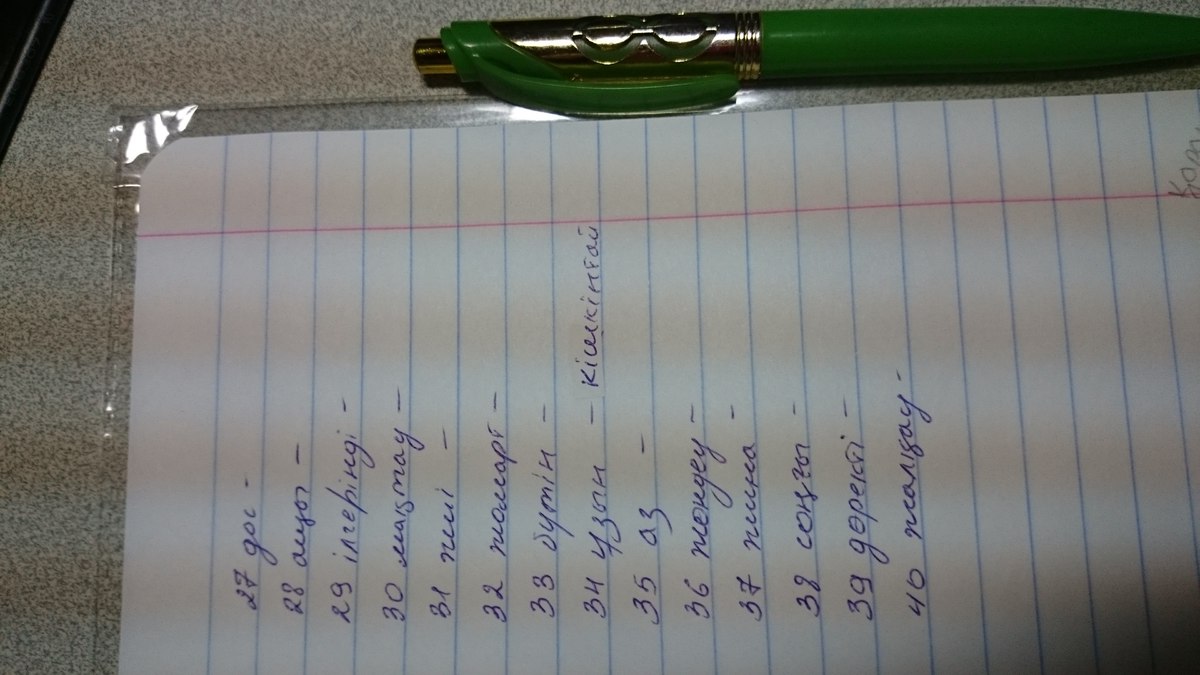 27 дос -
28 ащы -
29 ілгерінді -
30 мақтау -
31 жиі -
32 жомарт -
33 бүтін -
34 ұзын - кішкінтай
35 аз -
36 жөндеу -
37 жина -
38 соңғы -
39 дөрекі -
40 жалқау -